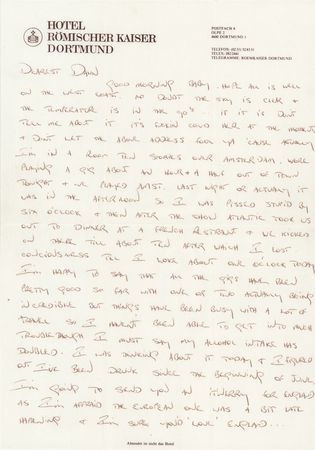 HOTEL
RÖMISCHER KAISER
DORTMUND
POSTFACH 4
OLPE 2
4600 DORTMUND 1
DEAREST DAWN
GOOD MORNING BABY. HOPE ALL IS WELL
ON THE WEST COAST. NO DOUBT THE SKY IS CLEAR &
THE TEMPERATURE IS IN THE 90'S. IF IT IS DON'T
TELL ME ABOUT IT IT'S COLD HERE AT THE MOMENT
& DON'T LET THE ABOVE ADDRESS FOOL YA 'CAUSE ACTUALLY
I'M IN A ROOM TEN STORIES OVER AMSTERDAM. WERE
PLAYING A GIG ABOUT AN HOUR & A HALF OUT OF TOWN
TONIGHT & WE PLAYED LAST NIGHT OR ACTUALLY IT
WAS IN THE AFTERNOON SO I WAS PISSED STUPID BY
SIX O'CLOCK & THEN AFTER THE SHOW ATLANTIC TOOK US
OUT TO DINNER AT A FRENCH RESTRANT & WE KICKED
ON THERE TILL ABOUT TEN AFTER WHICH I LOST
CONCIOUSNESS TILL I WOKE ABOUT ONE O'CLOCK TODAY
I'M HAPPY TO SAY THAT ALL THE GIGS HAVE BEEN
PRETTY GOOD SO FAR WITH ONE OR TWO ACTUALLY BEING
INCREDIBLE BUT THINGS HAVE BEEN BUSY WITH A LOT OF
TRAVEL SO I HAVEN'T BEEN ABLE TO GET INTO MUCH
TROUBLE THOUGH I MUST SAY MY ALCOHOL INTAKE HAS
DOUBLED. I WAS THINKING ABOUT IT TODAY & I FIGURED
OUT I'VE BEEN DRUNK SINCE THE BEGINNING OF JUNE.
I'M GOING TO SEND YOU AN FOR ENGLAND
AS I'M AFRAID THE EUROPEAN ONE WAS A BIT LATE
HAPPENING & I'M SURE YOU'D 'LOVE' ENGLAND...
Absender ist nicht das Hotel